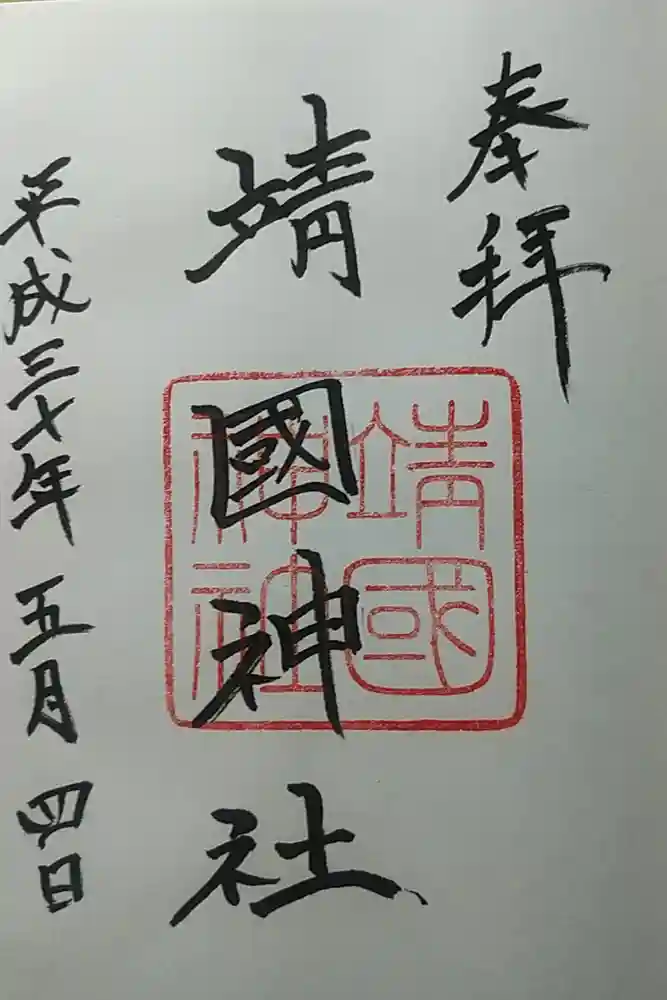 奉拝
靖國神社
靖國
神社
平成三十年五月四日